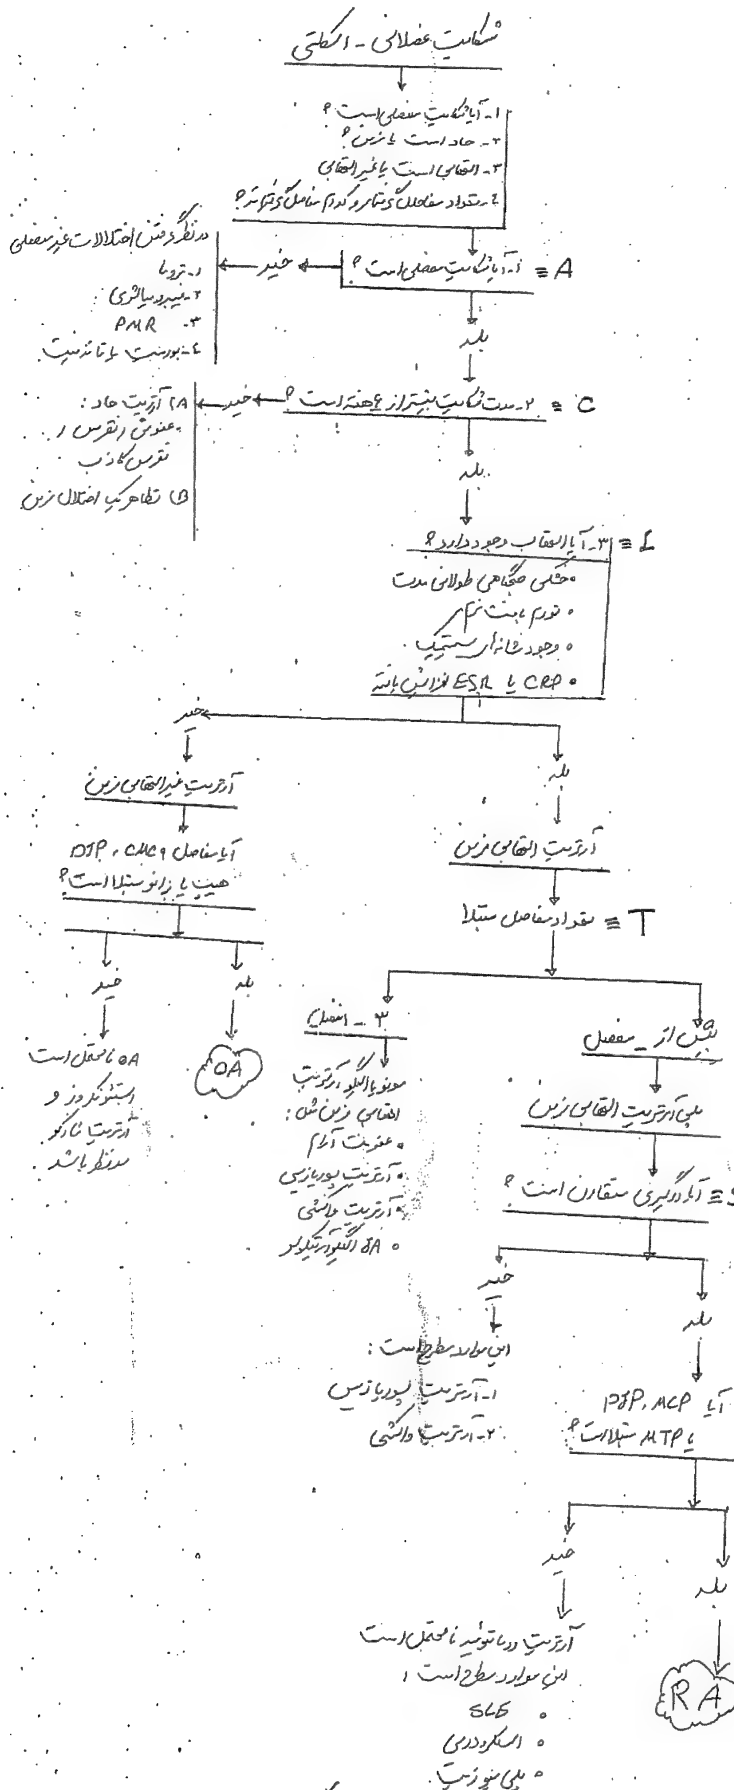 شکایت عضلانی - اسکلتی
۱- آیا شکایت مفصلی است؟
۲- حاد است یا مزمن؟
۳- التهابی است یا غیرالتهابی
٤- تعداد مفاصل گرفتار و کدام مفاصل گرفتارند؟
۱- آیا شکایت مفصلی است؟ ≡ A
خیر
در نظر گرفتن اختلالات غیرمفصلی
۱- تروما
۲- فیبرومیالژی
۳- PMR
٤- بورسیت یا تاندنیت
بله
۲- مدت شکایت بیشتر از ۶ هفته است؟ ≡ C
خیر
A) آرتریت حاد:
عفونی، نقرس،
نقرس کاذب
B) تظاهر یک اختلال مزمن
بله
۳- آیا التهاب وجود دارد؟ ≡ I
• خشکی صبحگاهی طولانی مدت
• تورم بافت نرم
• وجود نشانه‌های سیستمیک
• CRP یا ESR افزایش یافته
خیر
بله
آرتریت غیرالتهابی مزمن
آیا مفاصل DIP، CMC۱
هیپ یا زانو مبتلا است؟
خیر
بله
OA نامحتمل است
استئونکروز و
آرتریت شارکو
مدنظر باشد
OA
آرتریت التهابی مزمن
تعداد مفاصل مبتلا ≡ T
۳-۱ مفصل
مونو یا الیگو آرتریت
التهابی مزمن مثل:
• عفونت آرام
• آرتریت پسوریازیس
• آرتریت واکنشی
• JA الیگوآرتیکولر
بیش از ۳ مفصل
پلی آرتریت التهابی مزمن
آیا درگیری متقارن است؟ ≡ S
خیر
این موارد مطرح است:
۱- آرتریت پسوریازیس
۲- آرتریت واکنشی
بله
آیا PIP، MCP
یا MTP مبتلاست؟
خیر
آرتریت روماتوئید نامحتمل است
این موارد مطرح است:
• SLE
• اسکلرودرمی
• پلی میوزیت
بله
RA